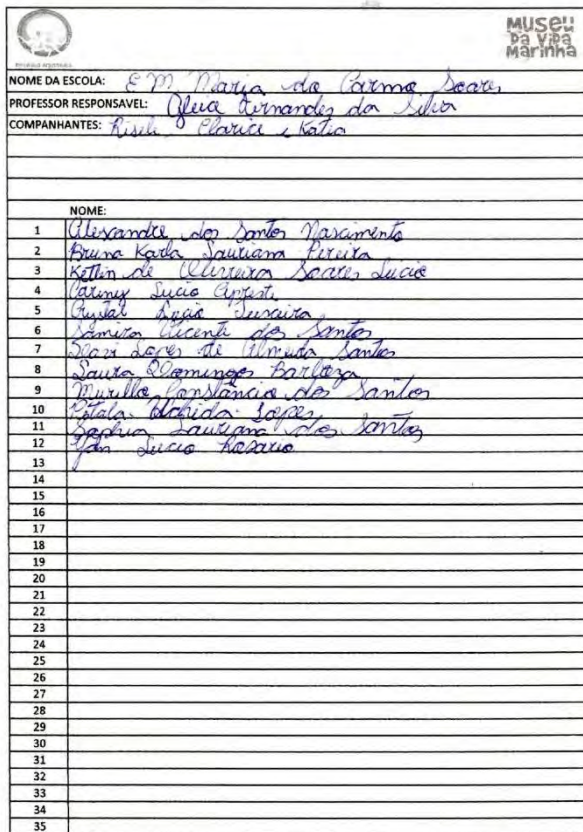 MUSEU
DA VIDA
MARINHA
NOME DA ESCOLA: E M Maria do Carmo Soares
PROFESSOR RESPONSAVEL: Fernandes da Silva
COMPANHANTES: Clarice e Katia
NOME:
1 Alexandre dos Santos Nascimento
2 Bruna Karla Lauriana Pereira
3 Ketlin de Oliveira Soares Lucio
4 Lucio
5 Crystal Lucio
6 Samira Vicente dos Santos
7 Lopes de Almeida Santos
8 Laura Domingos Barboza
9 Murillo Constâncio dos Santos
10 Lopes
11 Sophia Lauriana dos Santos
12 Yan Lucio Rosario
13
14
15
16
17
18
19
20
21
22
23
24
25
26
27
28
29
30
31
32
33
34
35